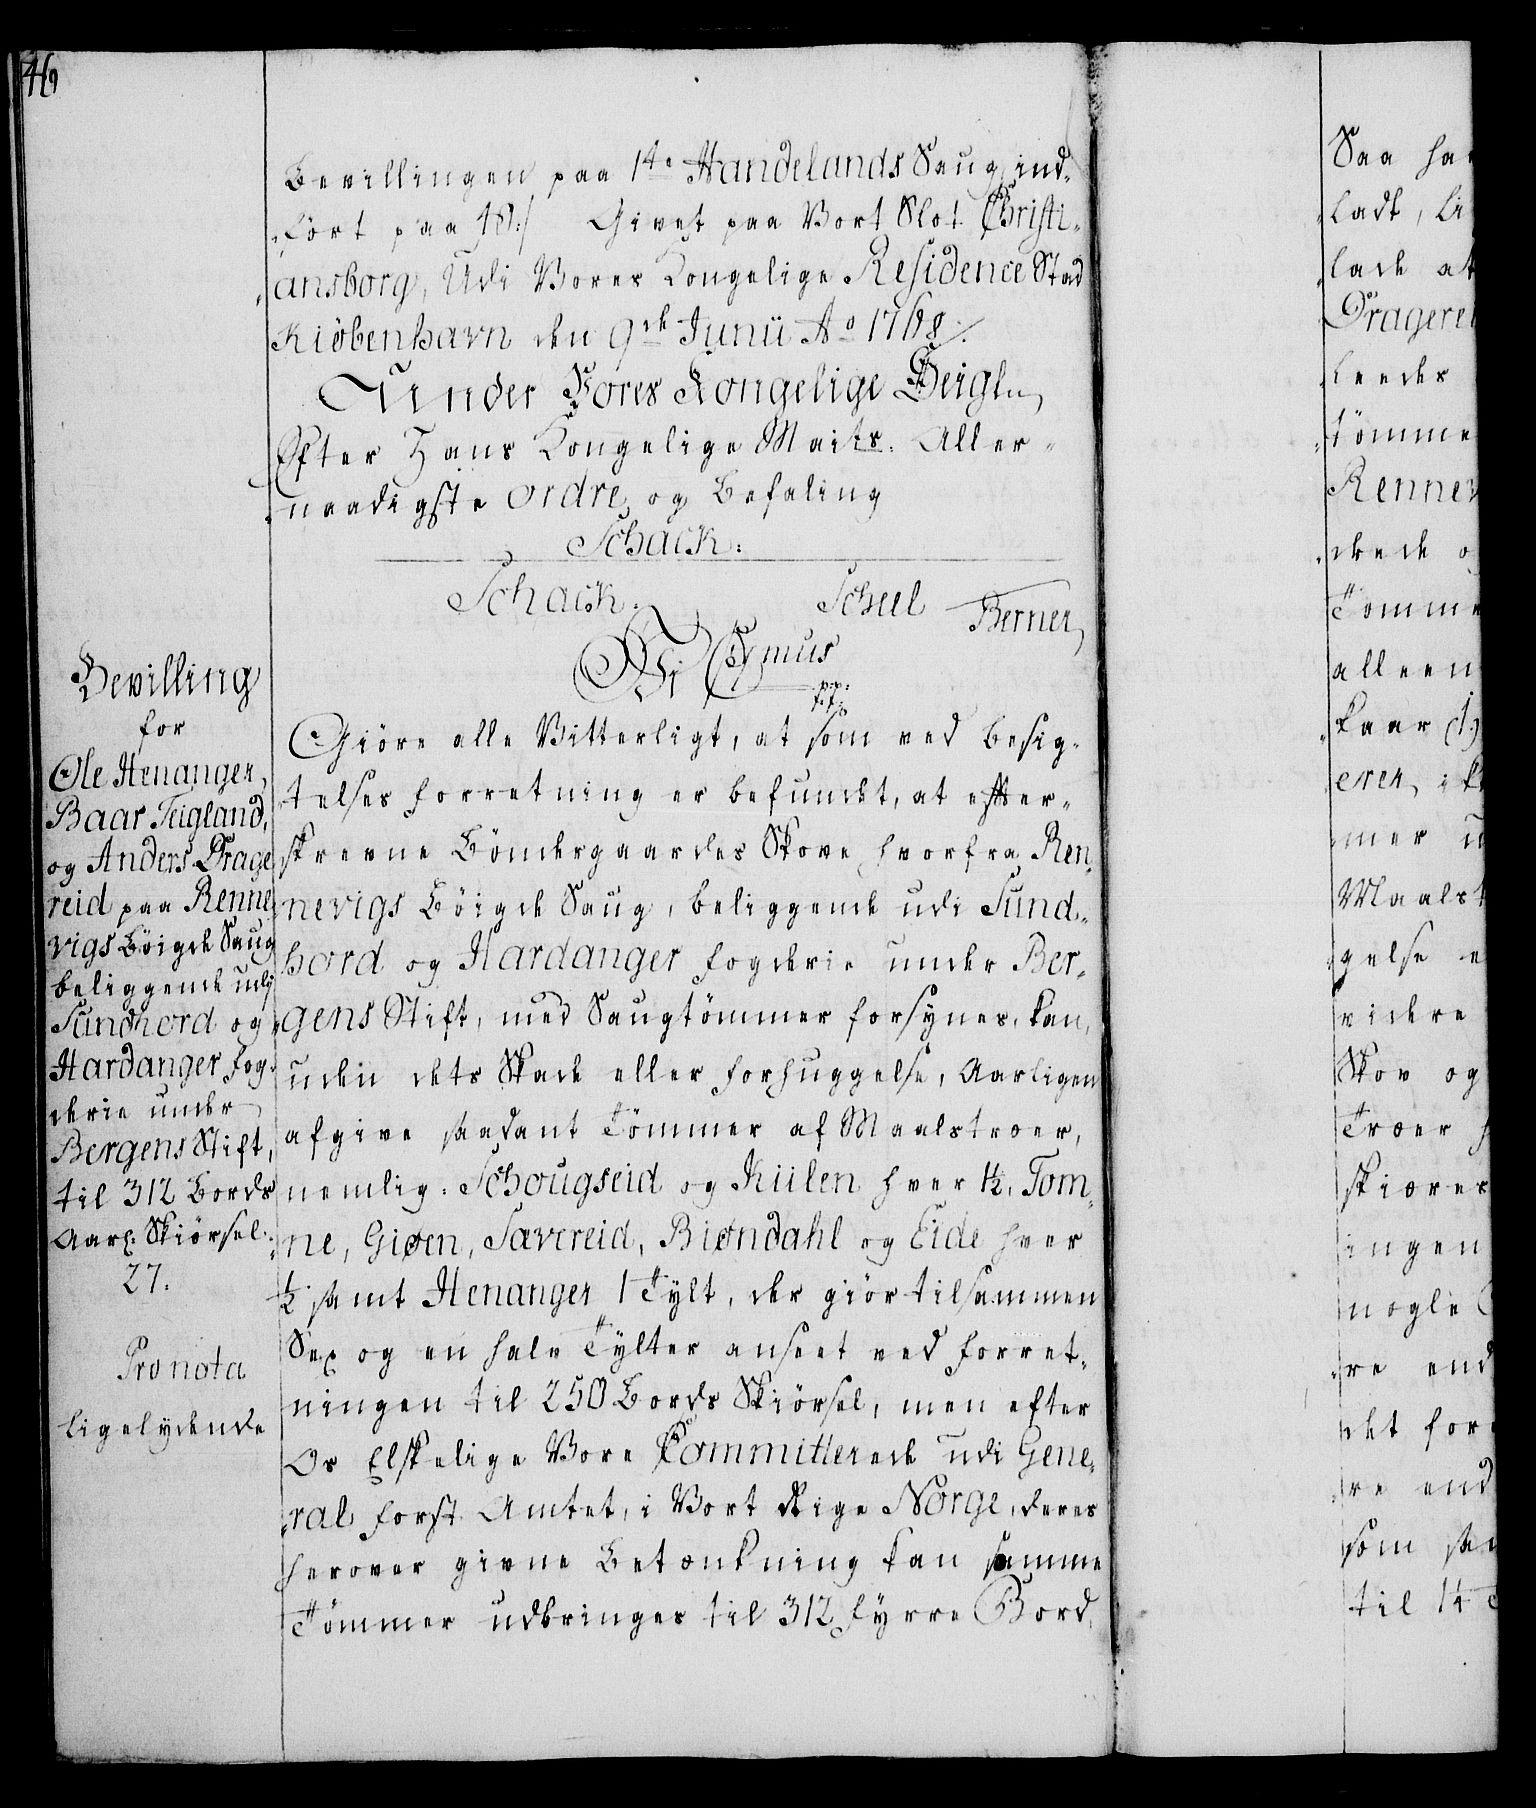 Bevillingen paa 14de Handelands Saug ind-
-fört paa Givet paa Vort Slot Christi-
-ansborg, Udi Vores Kongelige Residence Stad
Kiöbenhavn den 9de Junii Ao 1768./.
Under Vores Kongelige Seigl
Efter Hans Kongelige Maits. Aller-
-naadigste ordre og Befaling
Schack.
Schack. Scheel Berner
Wi C 7mus
p:p:
t:t:
Bevilling
for
Ole Henanger,
Baar Teigland,
og Anders Drage
reid paa Renne-
vigs Böigde Saug
beliggende udj
Sundhord og
Hardanger fog-
derie under
Bergens Stift,
til 312 Bords
Aarl: Skiörsel.
27.
Pro nota
Ligelydende
Giöre alle Vitterligt, at som ved besig-
-telses forretning er befundet, at efter-
skrevne Böndergaardes Skove hvorfra Ren-
nevigs Böigde Saug, beliggende udi Sund-
hord og Hardanger fogderie under Ber-
-gens Stift, med Saugtömmer forsynes, kan,
uden dets Skade eller forhuggelse, Aarligen
afgive saadant Tömmer af Maalstroer,
nemlig: Schougseid og Kiilen hver 1½, Tom-
-ne, Giøen, Sævereid, Biøndahl og Eide hver
½ samt Henanger 1 Tylt, der giör tilsammen
Sex og en halv Tylter anseet ved forret-
ningen til 250 Bords Skiörsel, men efter
Os Elskelige Vore Committerede udi Gene-
-ral forst Amtet, i Vort Rige Norge, deres
herover givne Betænkning kan samme
Tömmer udbringes til 312 fyrre Bord,
Saa ha
ladt, li
lade at
Dragerei
Leedes
tömme
Renne
dede o
Tömme
alleen
kaar
eren, i
mer u
Maalst
gelse e
videre
Skov og
Træer h
skiærer
ingen
nogle
re end
det for
re end
som sa
til 14